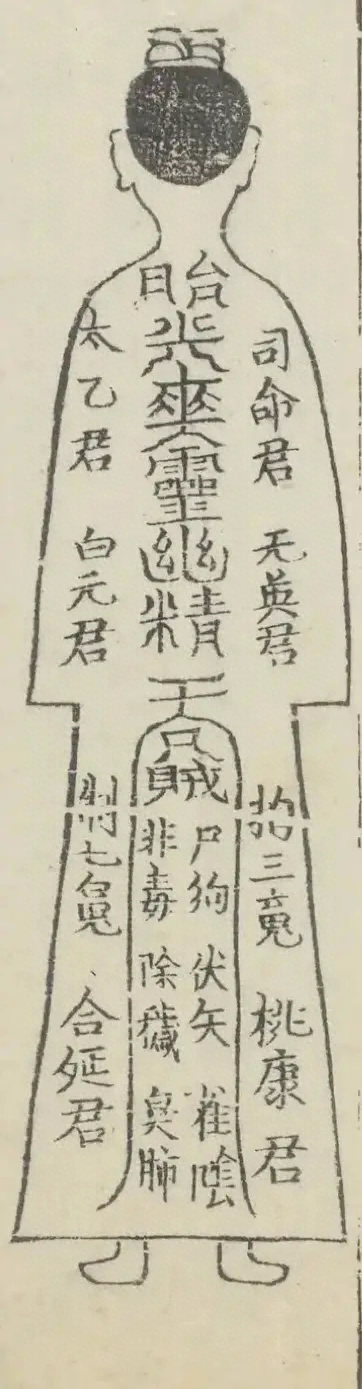 司命君　无英君
拘三魂　桃康君
胎光爽靈幽精
吞賊
尸狗　伏矢　雀陰
非毒　除穢　臭肺
太乙君　白元君
制七魄　合延君